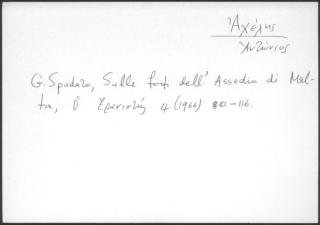 Ἀχέλης
Ἀντώνιος
G. Spadaro, Sulle fonti dell' Assedio di Mal-
ta, Ὁ Ἐρανιστής 4 (1966) 80-116.